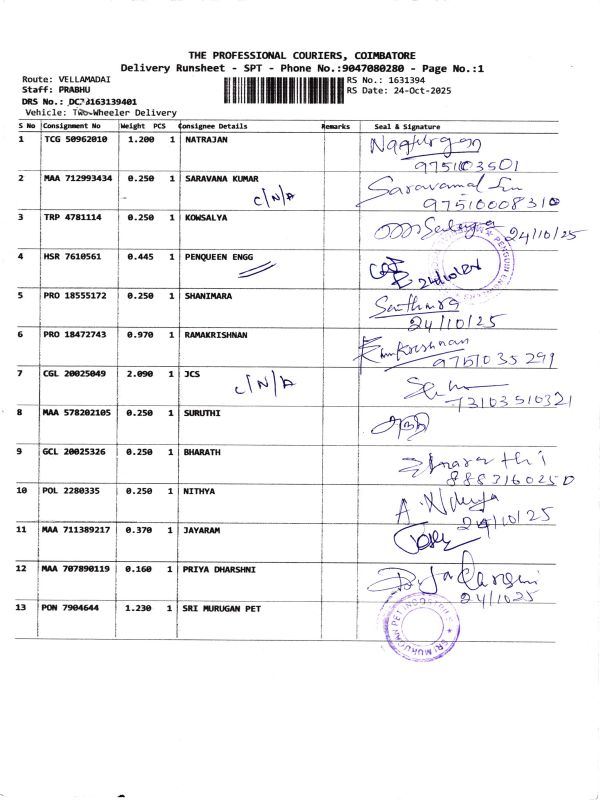 THE PROFESSIONAL COURIERS, COIMBATORE
Delivery Runsheet - SPT - Phone No.:9047080280 - Page No.:1
Route: VELLAMADAI
RS No.: 1631394
Staff: PRABHU
RS Date: 24-Oct-2025
DRS No.: DC 163139401
Vehicle: Two-Wheeler Delivery
S No Consignment No Weight PCS Consignee Details Remarks Seal & Signature
1 TCG 50962010 1.200 1 NATRAJAN
9751103501
2 MAA 712993434 0.250 1 SARAVANA KUMAR
C/N/A
97510008310
3 TRP 4781114 0.250 1 KOWSALYA
24/10/25
4 HSR 7610561 0.445 1 PENQUEEN ENGG
5 PRO 18555172 0.250 1 SHANIMARA
24/10/25
6 PRO 18472743 0.970 1 RAMAKRISHNAN
9751035291
7 CGL 20025049 2.090 1 JCS
C/N/A
73103510321
8 MAA 578202105 0.250 1 SURUTHI
9 GCL 20025326 0.250 1 BHARATH
8883160250
10 POL 2280335 0.250 1 NITHYA
24/10/25
11 MAA 711389217 0.370 1 JAYARAM
12 MAA 707890119 0.160 1 PRIYA DHARSHNI
24/1025
13 PON 7904644 1.230 1 SRI MURUGAN PET
SRI MURUGAN PET INDUSTRIES